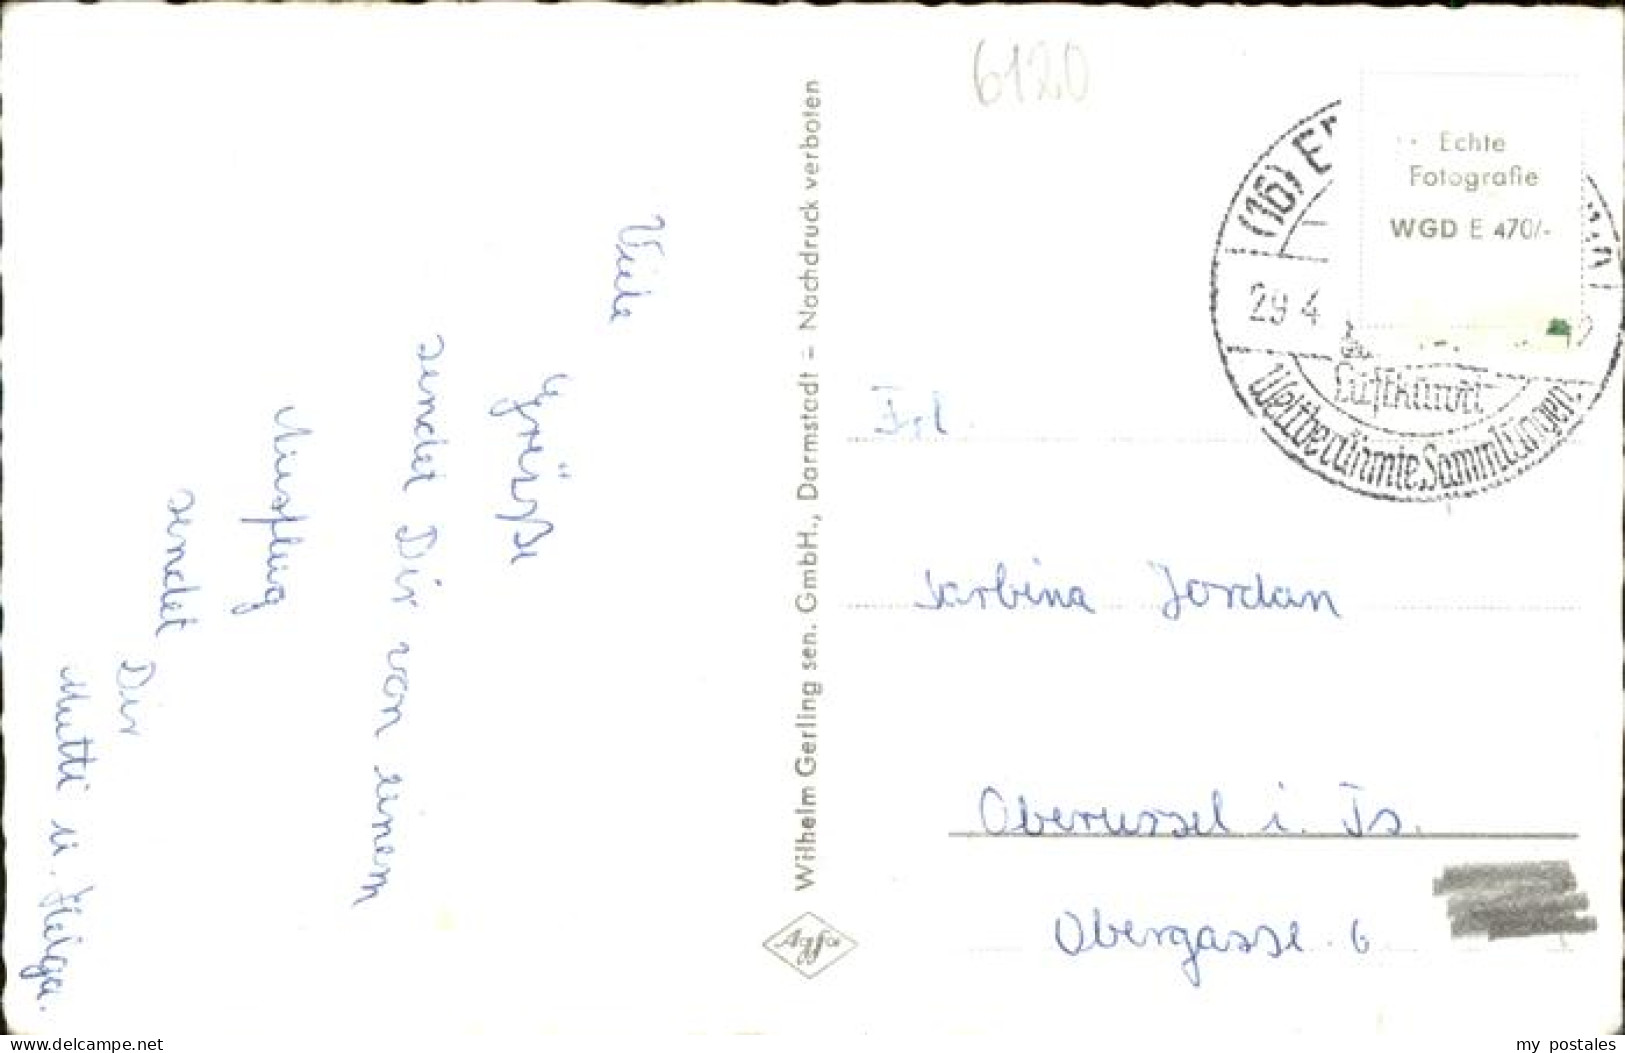 Viele
Grüsse
sendet Dir von einem
Ausflug
sendet
Dir
Mutti u. Helga.
Wilhelm Gerling sen. GmbH., Darmstadt – Nachdruck verboten
Agfa
6120
Echte
Fotografie
WGD E 470/-
(16)
29 4
Luftkurort
Weltberühmte Sammlungen
Frl.
Jordan
Oberussel i. Ts.
Obergasse 6
www.ansichtskartenversand.com
my_postales